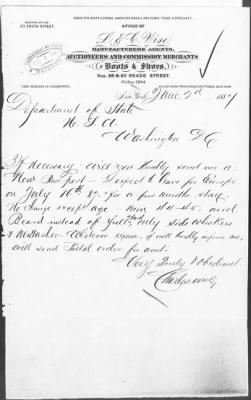 OFFICE OF
L. & C. Wise,
MANUFACTURERS' AGENTS,
AUCTIONEERS AND COMMISSION MERCHANTS
Boots & Shoes,
Nos. 85 & 87 READE STREET,
New York, June 2d 1887
Department of State
U. S. A.
Washington D C
If necessary will you kindly send me a
New Passport – I expect to leave for Europe
on July 10th 87. for a few months stay.
No change except age now 44-45. and
Beard instead of full, only side whiskers
& Mustache expense, if will kindly inform me,
will send Postal order for amt.
Very Truly & Obedient
Charles Wise